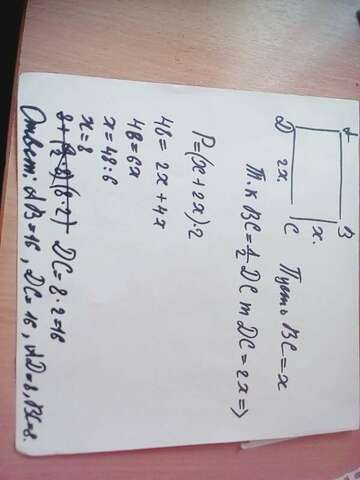 A
B
D
C
2x.
x.
Пусть BC = x
Т. к BC = 1/2 DC т DC = 2x =>
P = (x + 2x) · 2
48 = 2x + 4x
48 = 6x
x = 48 : 6
x = 8
DC = 8 · 2 = 16
Ответ: AB = 16, DC = 16, AD = 8, BC = 8.